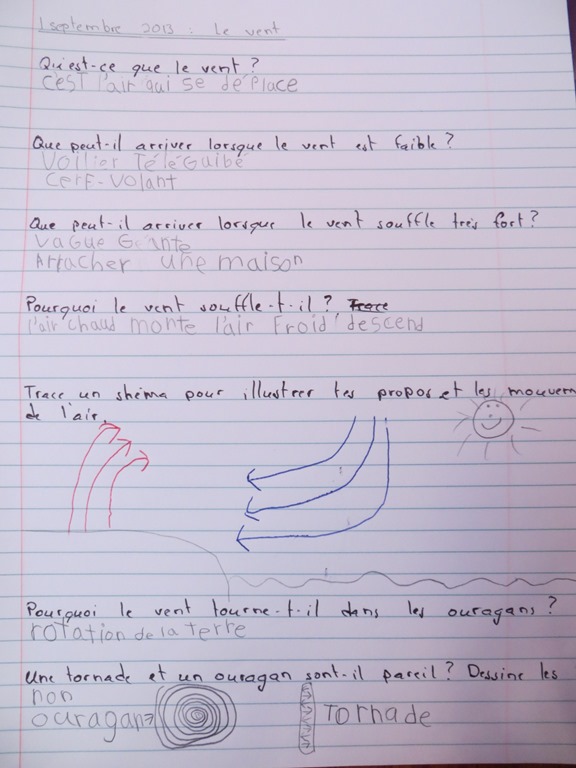 1 septembre 2013 : Le vent
Qu'est-ce que le vent ?
C'EST l'air qui se déplace
Que peut-il arriver lorsque le vent est faible ?
Voilier TéléGuibé
Cerf-Volant
Que peut-il arriver lorsque le vent souffle très fort ?
Vague Géante
Arracher une maison
Pourquoi le vent souffle-t-il ? Trace
l'air chaud monte l'air Froid descend
Trace un shéma pour illustrer tes propos et les mouvem
de l'air.
Pourquoi le vent tourne-t-il dans les ouragans ?
rotation de la terre
Une tornade et un ouragan sont-il pareil ? Dessine les
non
ouragan
Tornade